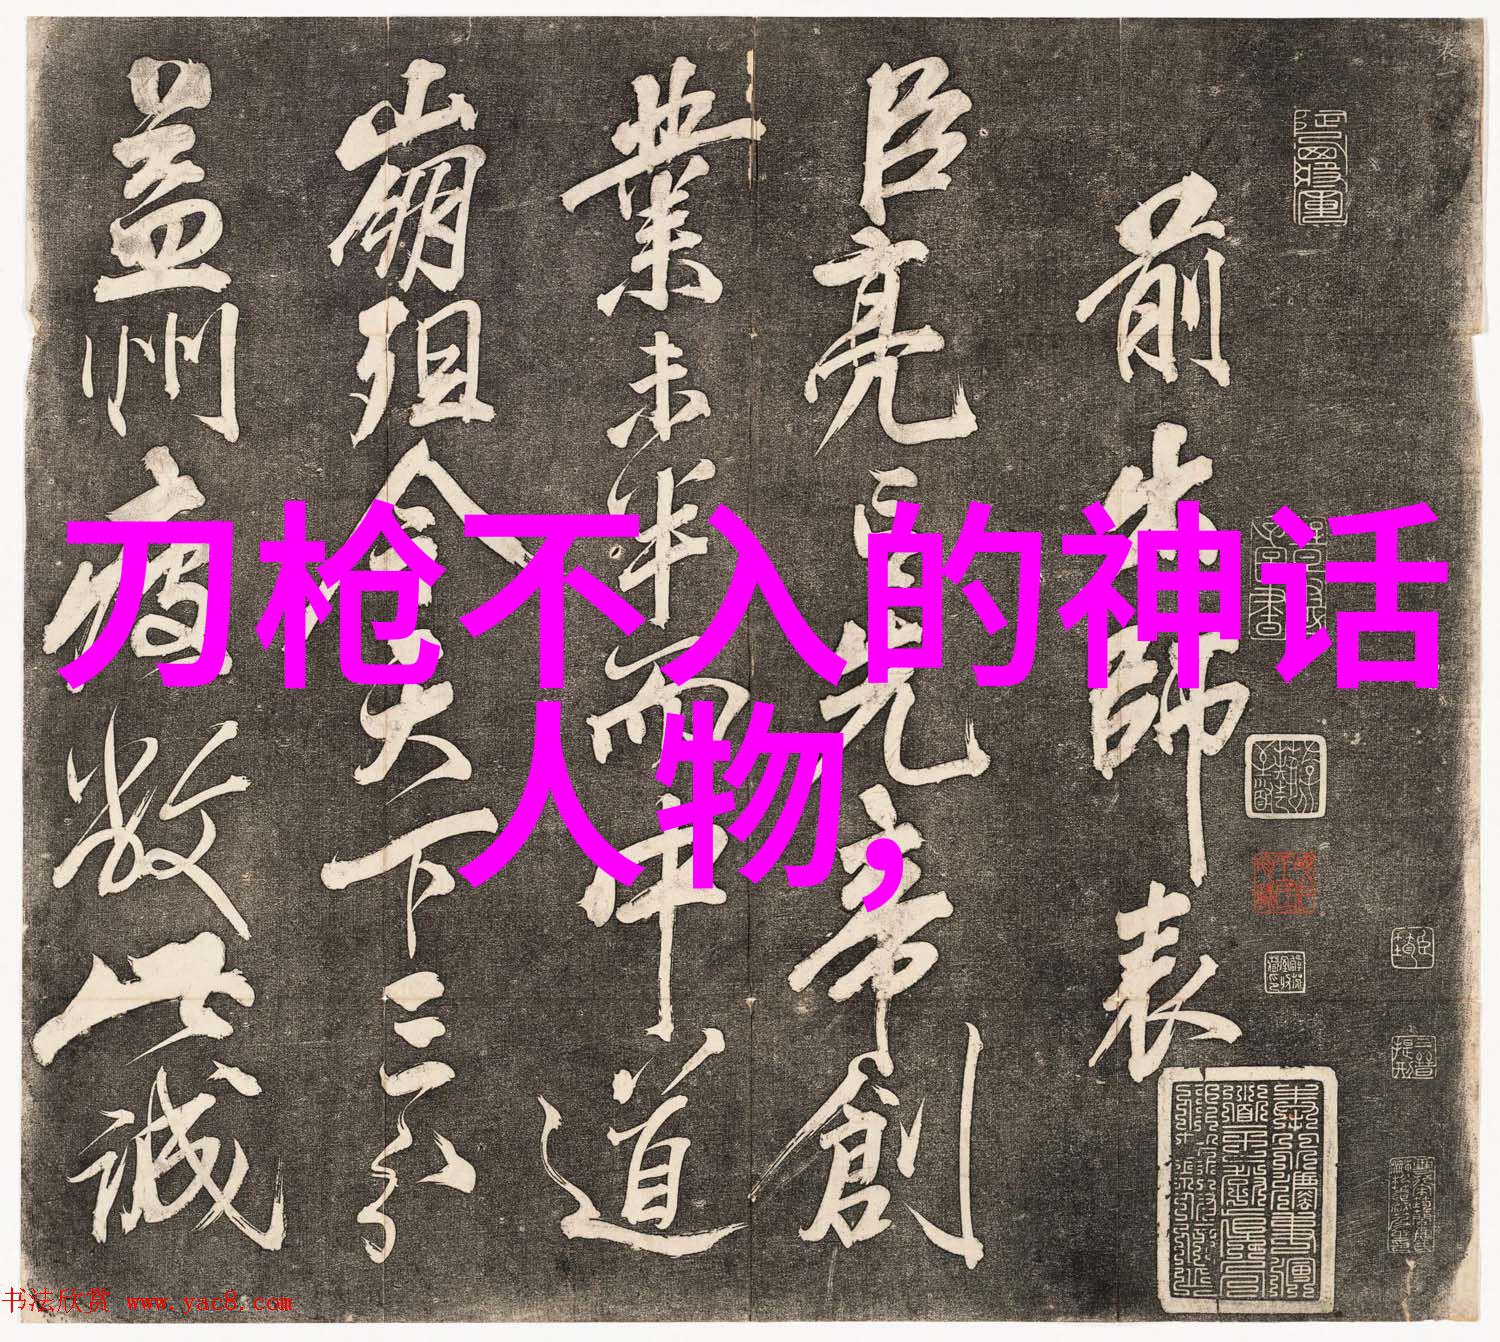 前出師表
臣亮言先帝創
業未半而中道
崩殂今天下三分
益州疲敝此誠
刀枪不入的神话
人物,
书法欣赏 www.yac8.com